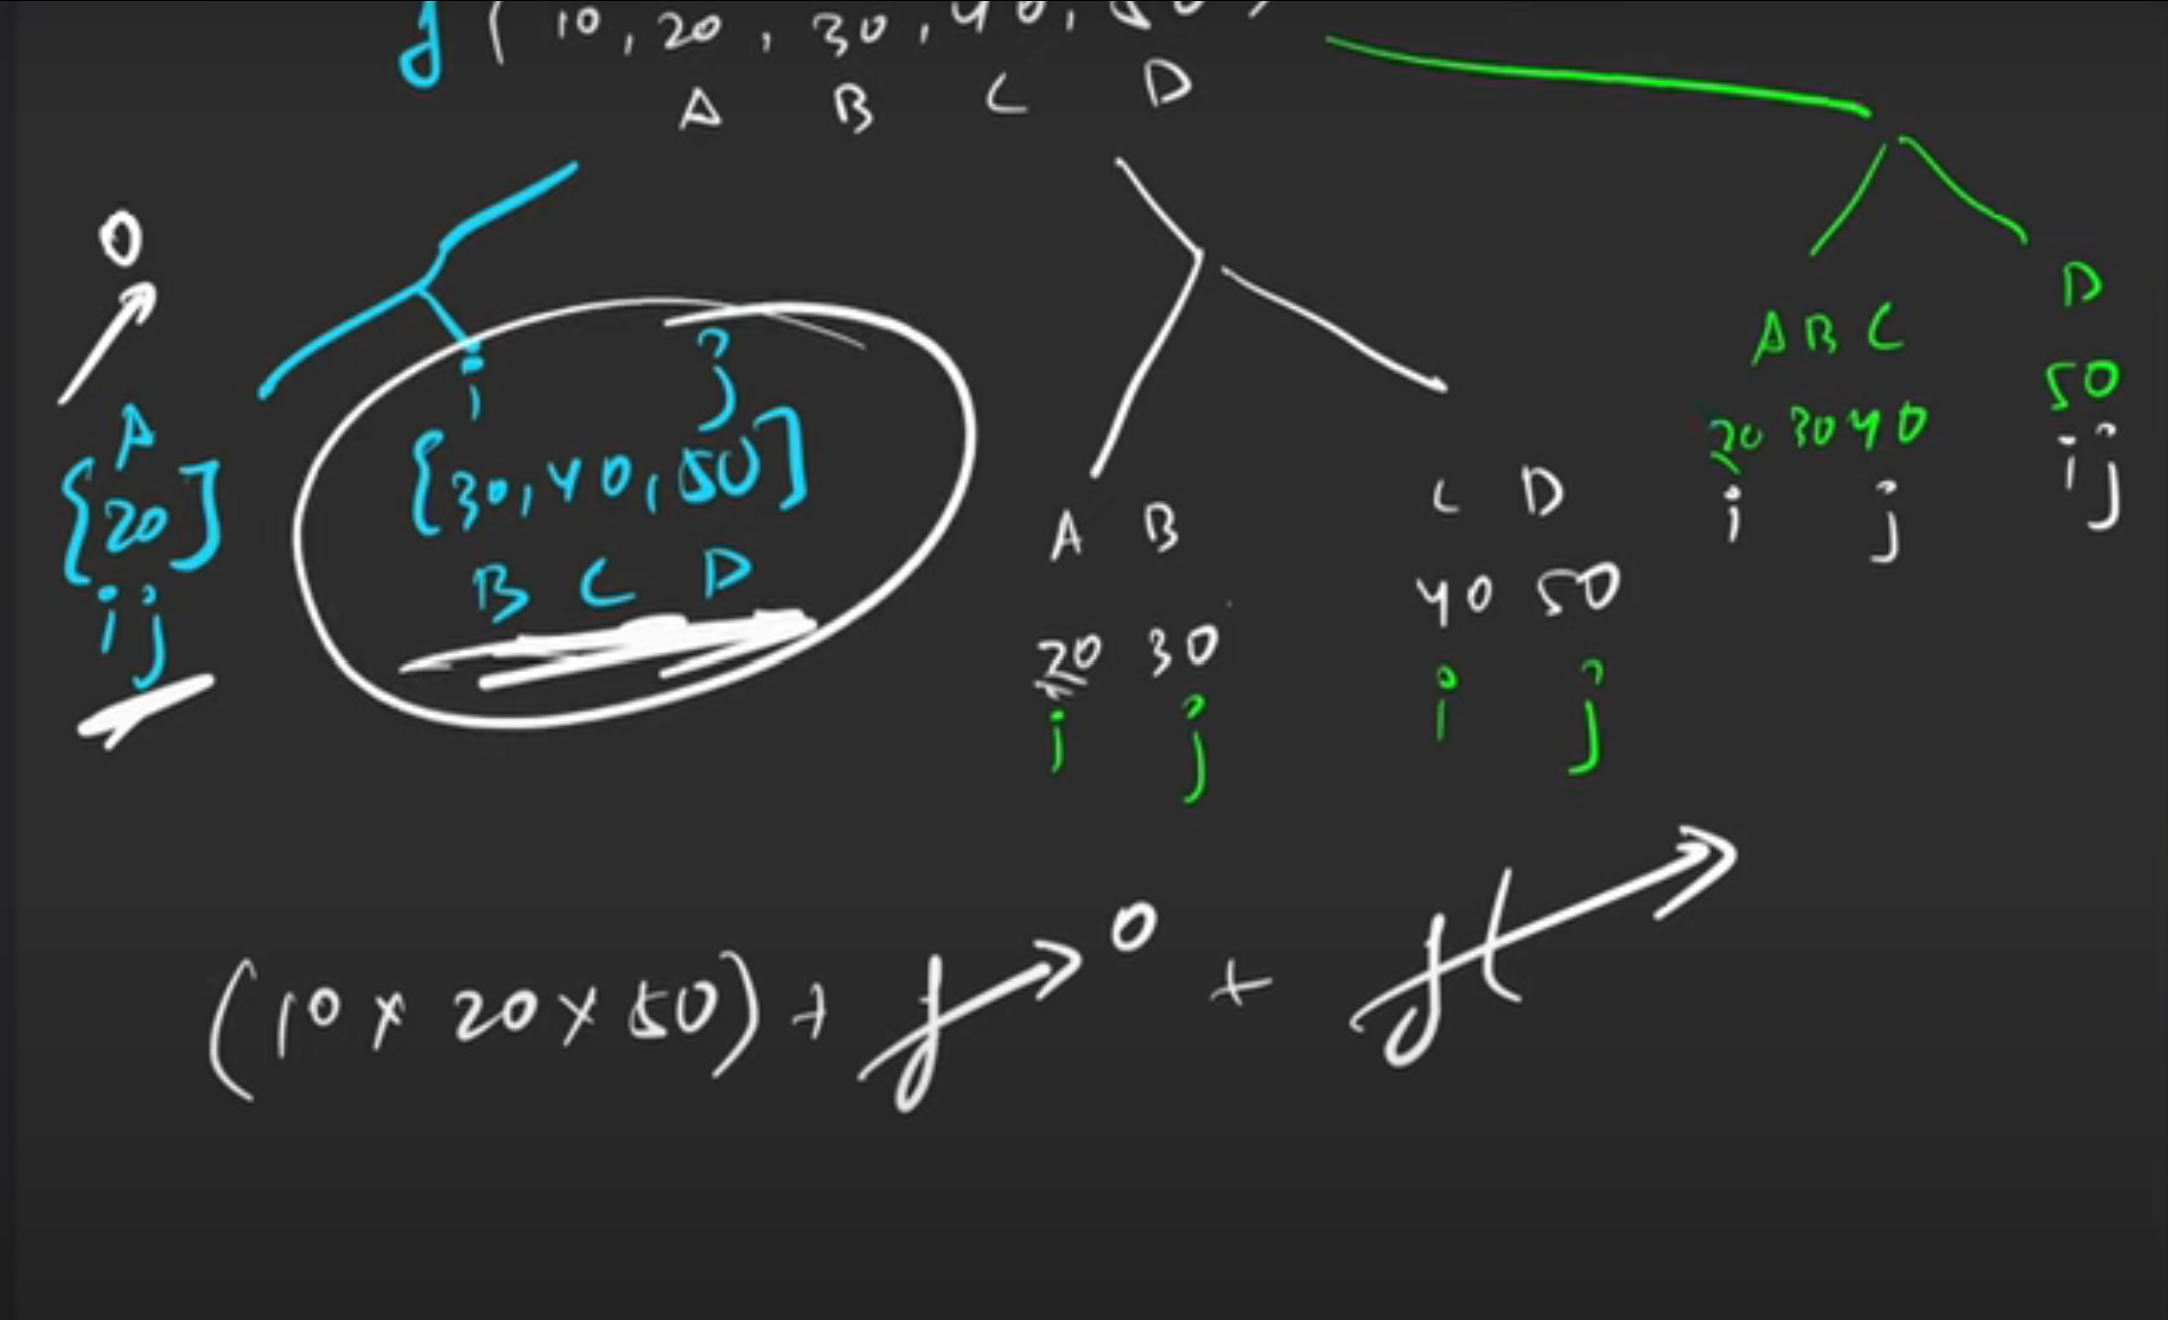 f ( 10, 20, 30, 40, 50 )
A B C D
0
A
{20}
i j
i j
{30, 40, 50}
B C D
A B
20 30
i j
C D
40 50
i j
A B C
20 30 40
i j
D
50
i j
(10 x 20 x 50) + f → 0 + f( →